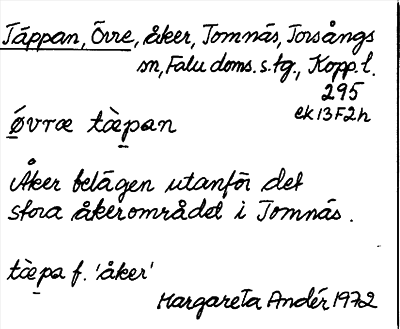 Täppan, Övre, åker, Tomnäs, Torsångs
sn, Falu doms. s. tg., Kopp. l.
295
ek 13 F 2 h
ø̱vræ tæ̀p̱an
Åker belägen utanför det
stora åkerområdet i Tomnäs.
tæ̀p̱a f. 'åker'
Margareta Andér 1972